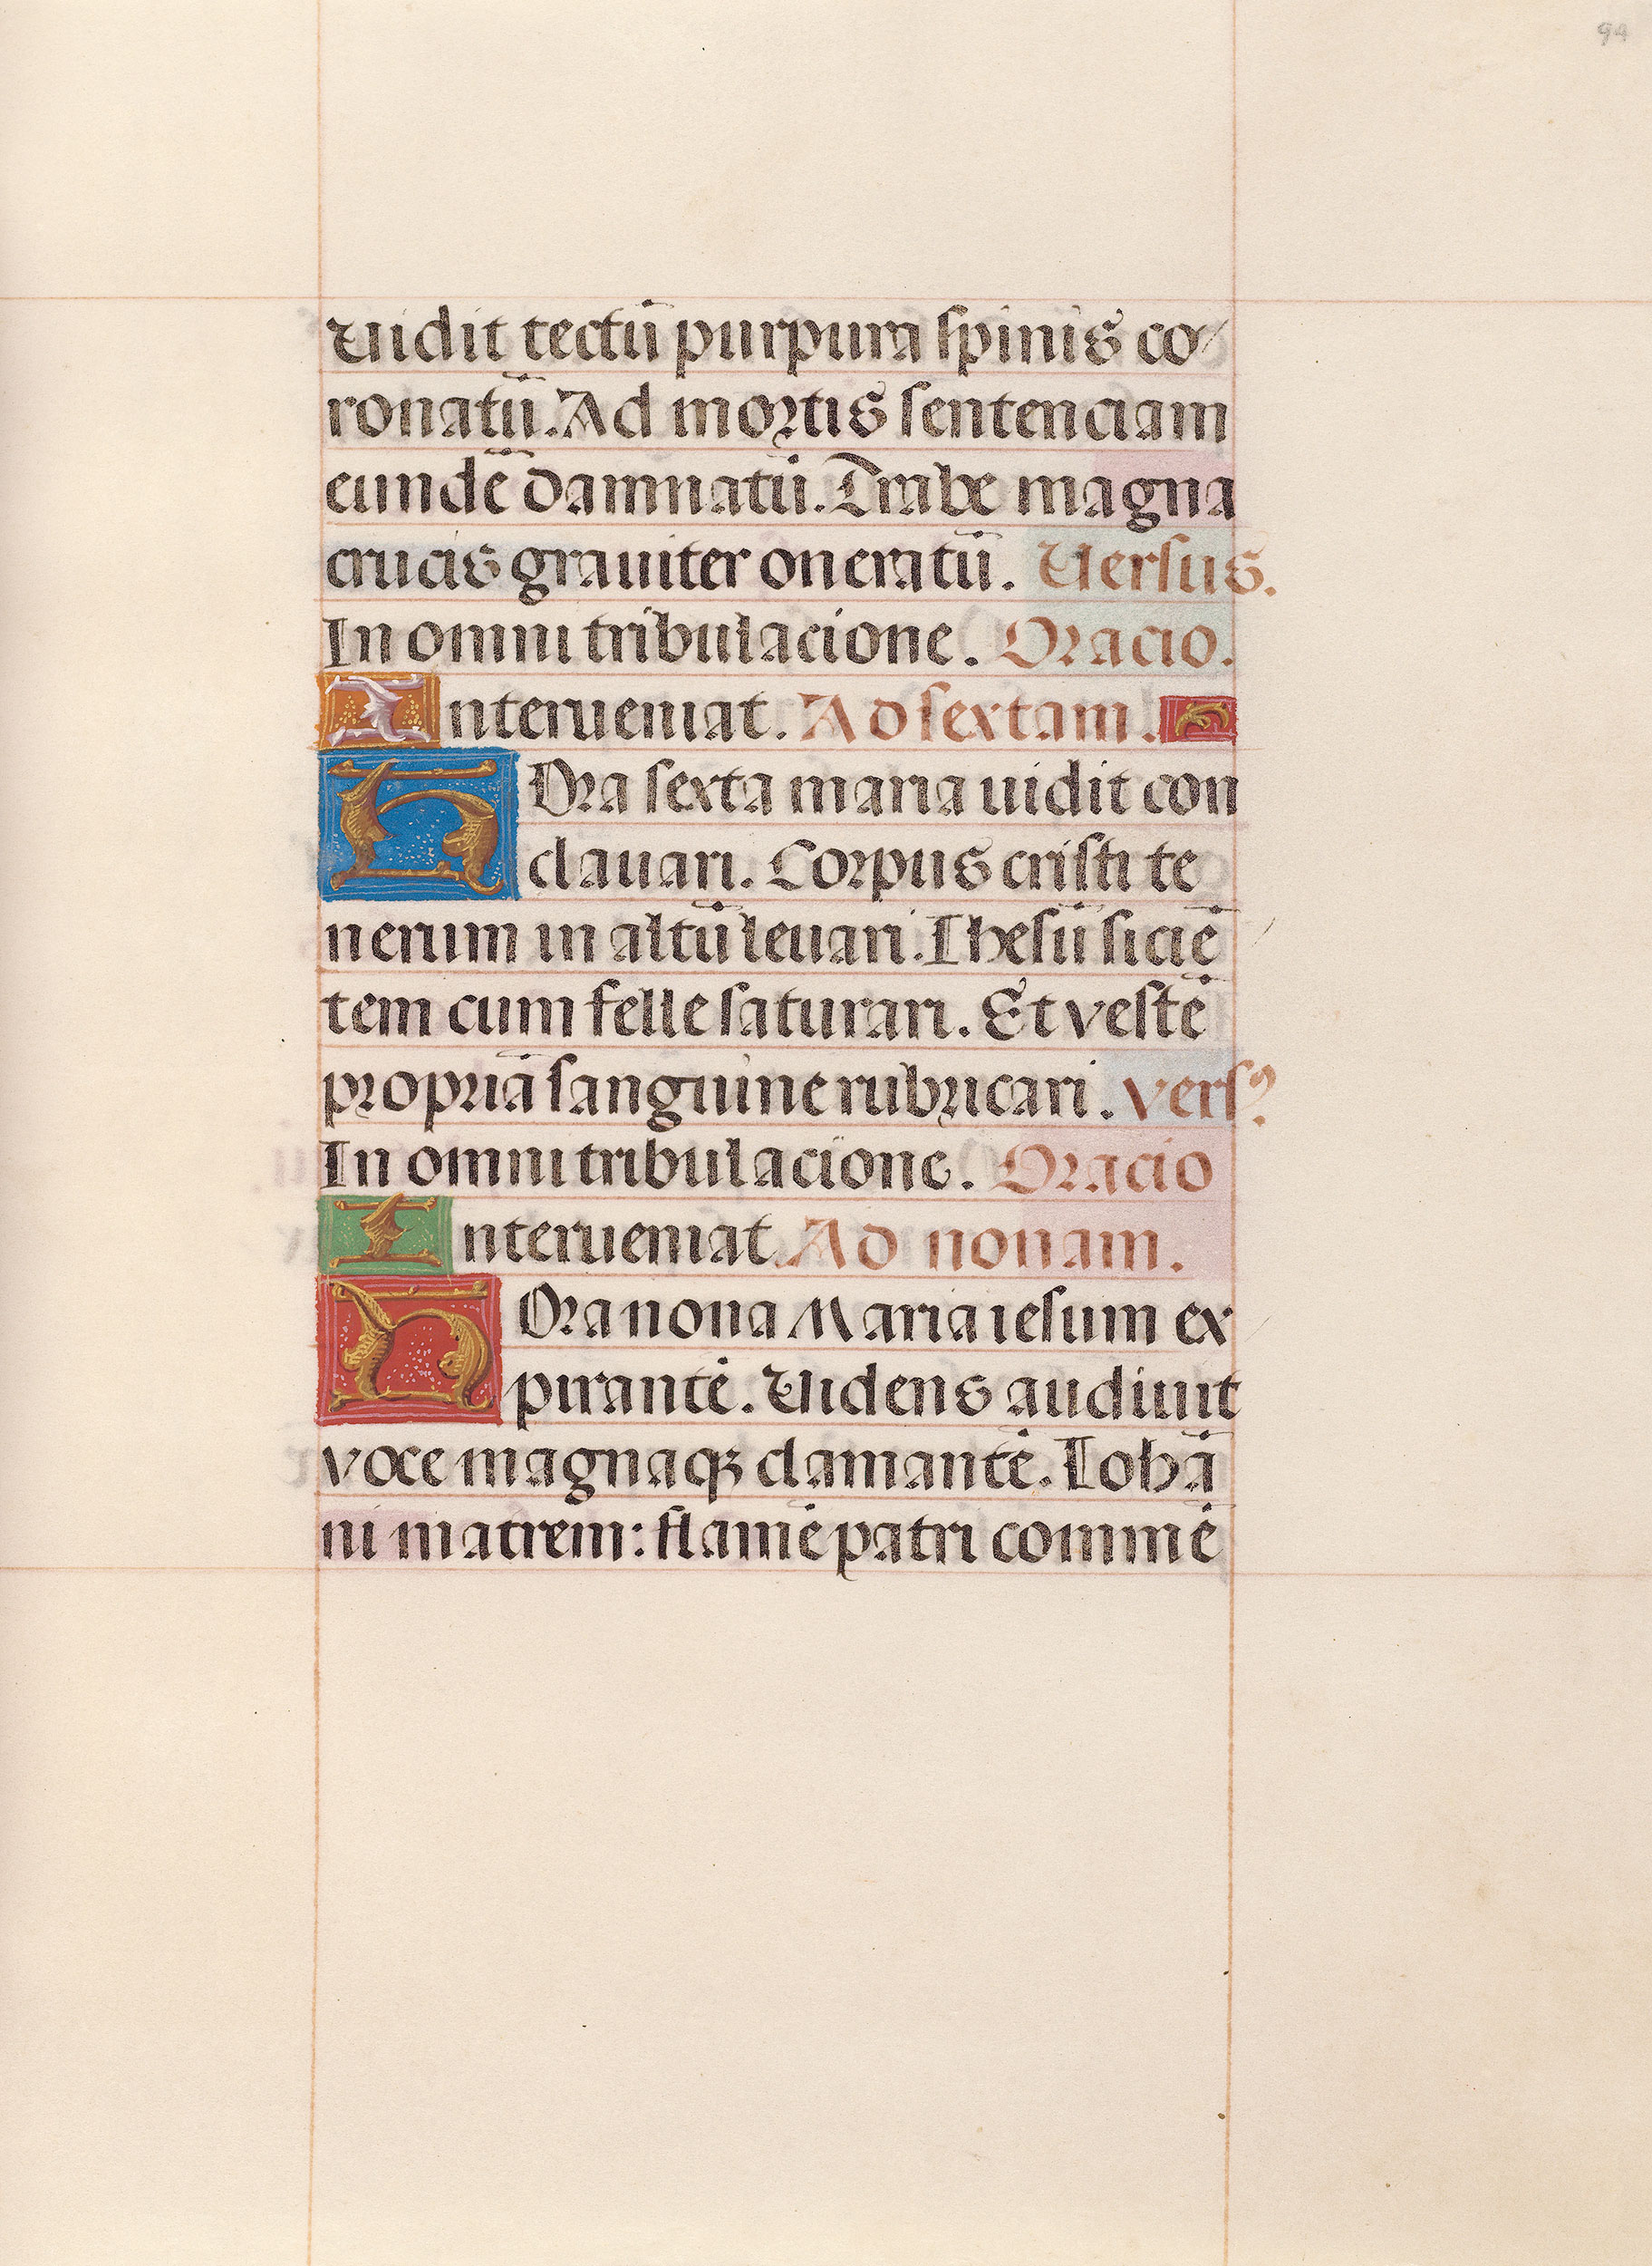 94
Vidit tectū purpura spinis co/
ronatū. Ad mortis sentenciam
eundē damnatū. Trabe magna
crucis grauiter oneratū. Versus.
In omni tribulacione. Oracio.
Interueniat. Ad sextam.
Hora sexta maria uidit con
clauari. Corpus cristi te
nerum in altū leuari. Ihesū siciē
tem cum felle saturari. Et vestē
propriā sanguine rubricari. versꝰ.
In omni tribulacione. Oracio
Interueniat. Ad nonam.
Hora nona Maria iesum ex
pirantē. Videns audiuit
voce magnaqꝫ clamantē. Iohā
ni matrem: flamē patri commē